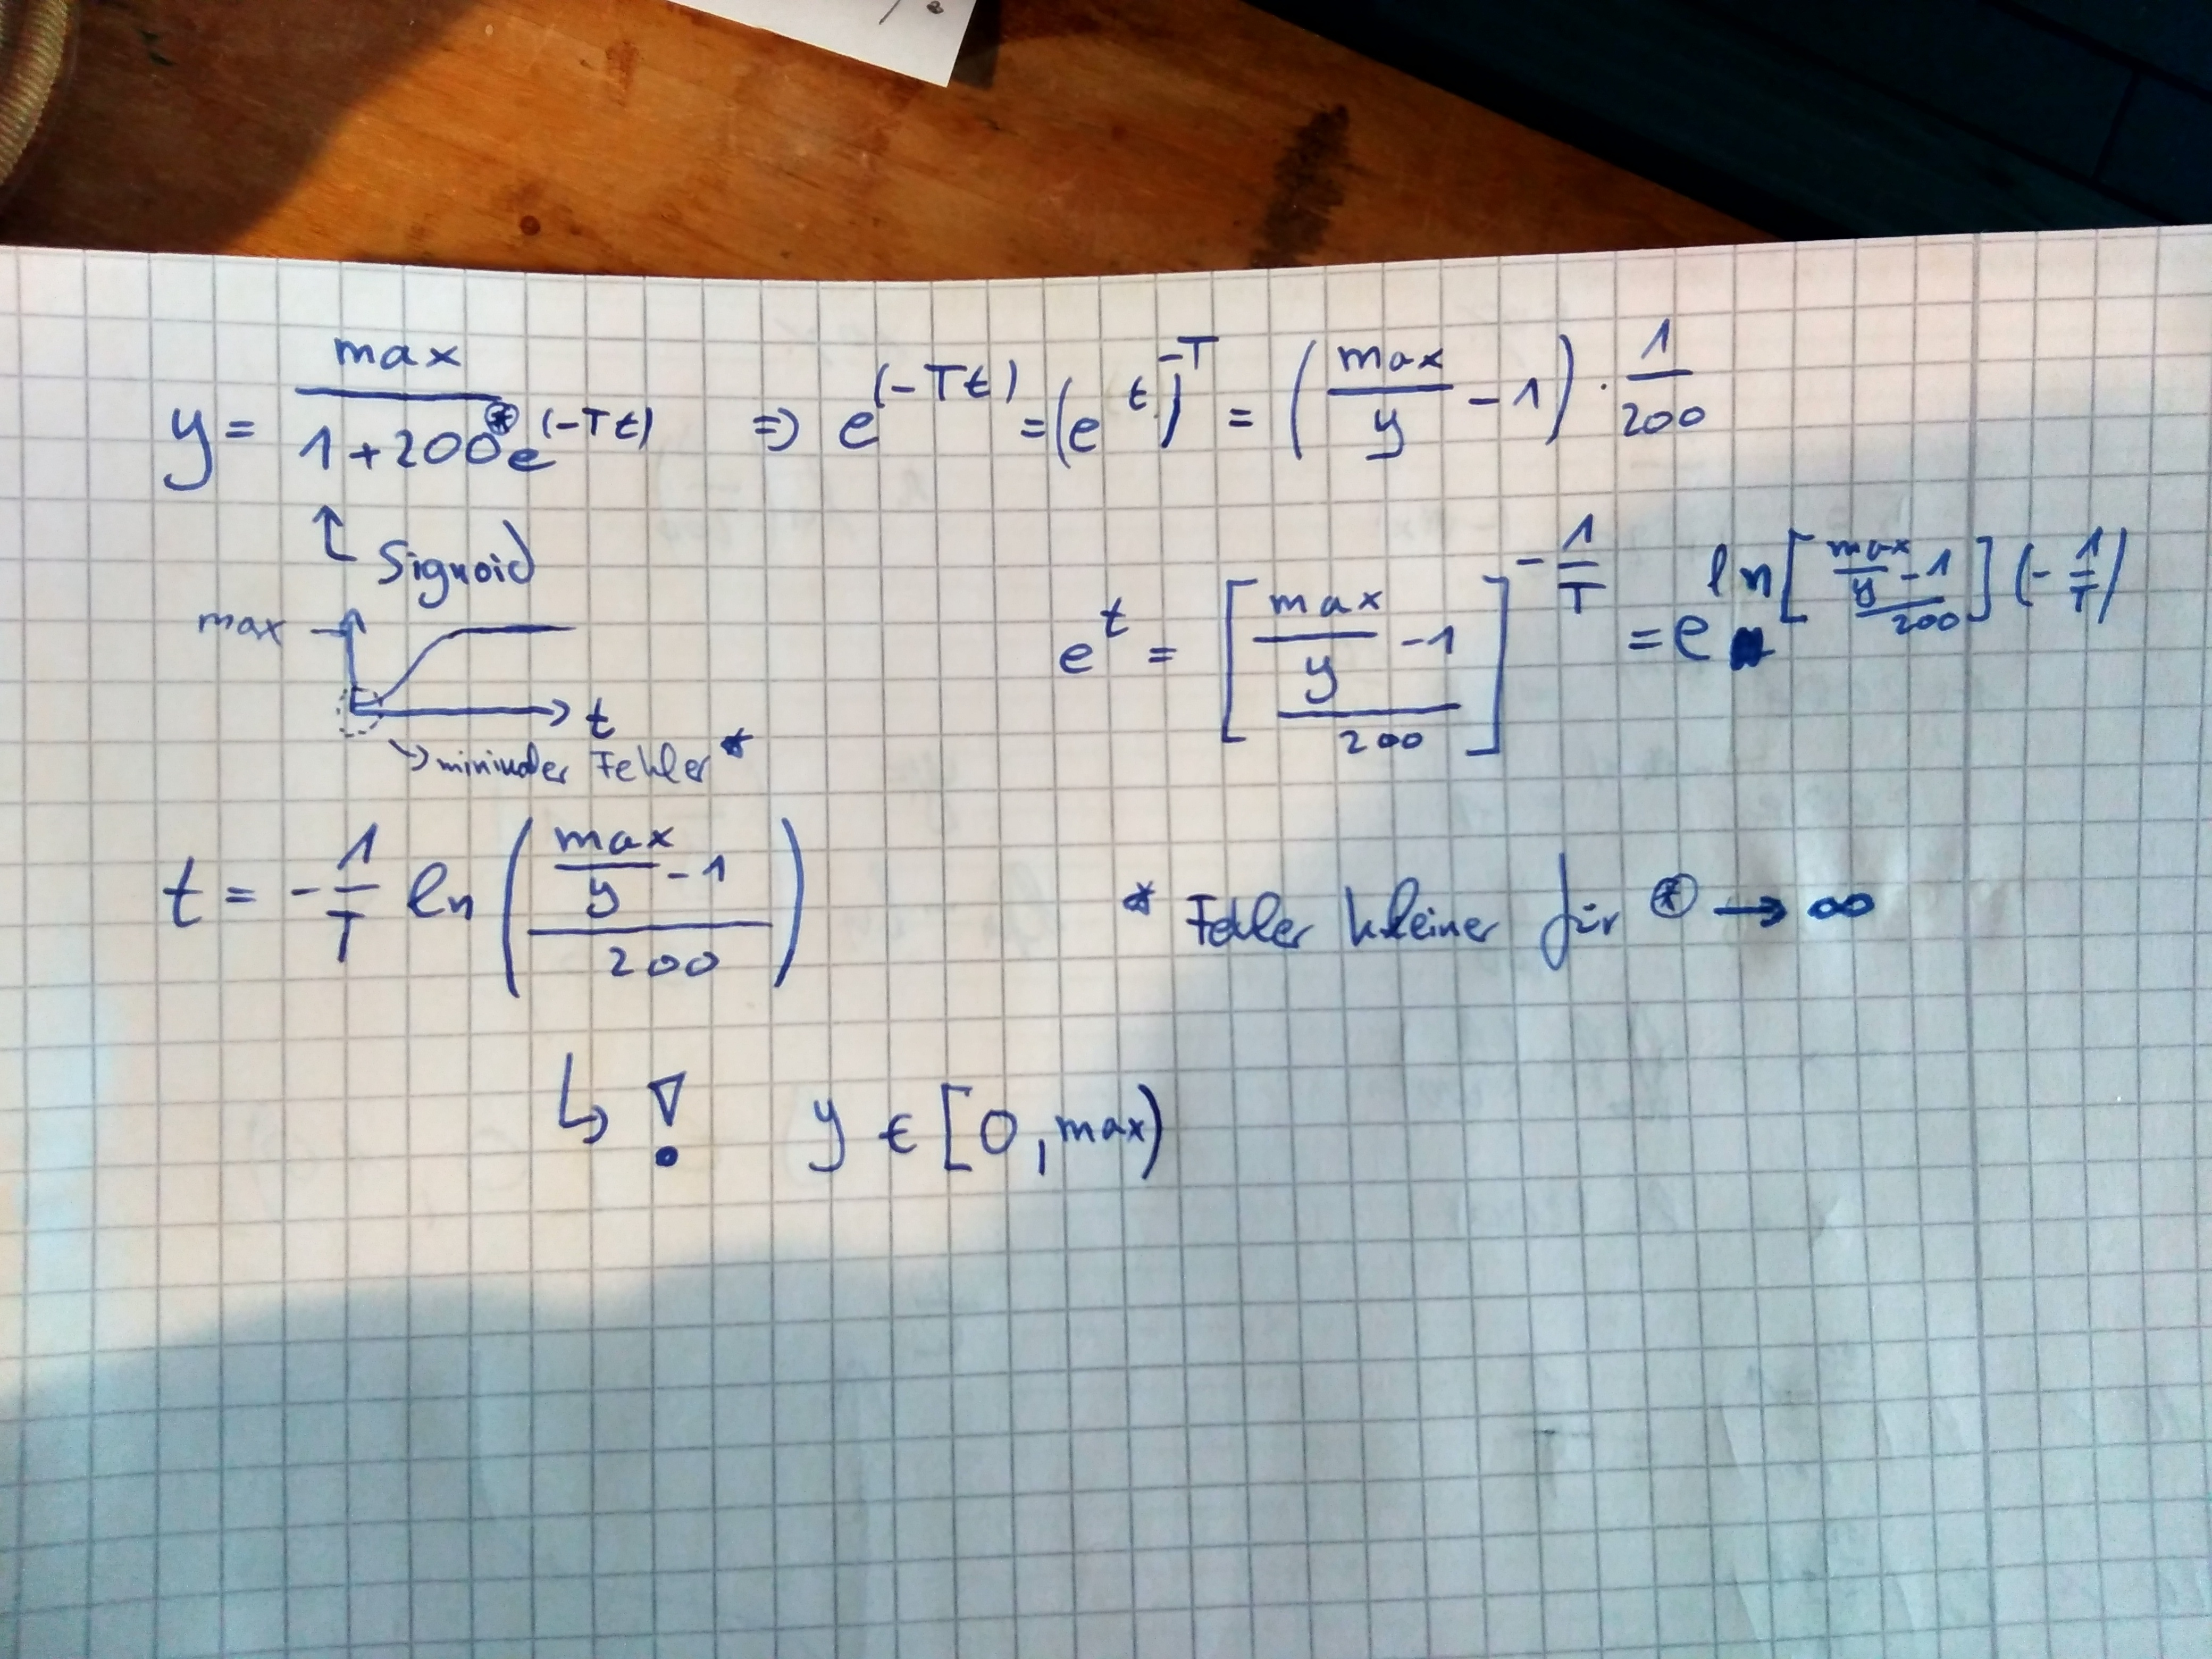 y = max / (1 + 200⊛ e^(-Tt)) ⇒ e^(-Tt) = (e^t)^-T = (max/y - 1) · 1/200
↑ Sigmoid
max
t
→ minimaler Fehler *
e^t = [(max/y - 1)/200]^(-1/T) = e^(ln[(max/y - 1)/200](-1/T))
t = -1/T ln((max/y - 1)/200)
* Fehler kleiner für ⊛ → ∞
↳ ! y ∈ [0, max)